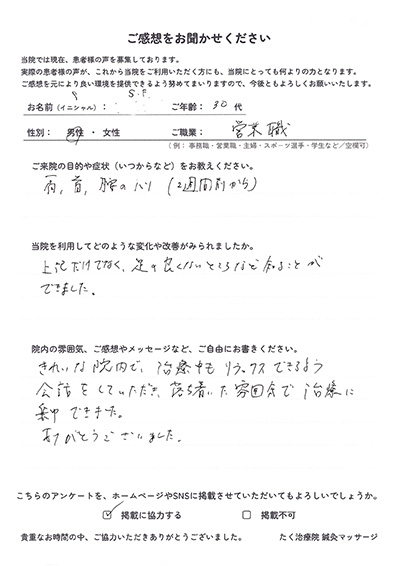 ご感想をお聞かせください
当院では現在、患者様の声を募集しております。
実際の患者様の声が、これから当院をご利用いただく方にも、当院にとっても何よりの力となります。
ご感想を元により良い環境を提供できるよう努めてまいりますので、今後ともよろしくお願いいたします。
お名前（イニシャル）： S.F. ご年齢： 30 代
性別： 男性 ・ 女性 ご職業： 営業職
（例： 事務職・営業職・主婦・スポーツ選手・学生など／空欄可）
ご来院の目的や症状（いつからなど）をお教えください。
肩, 首, 腰のハリ (2週間前から)
当院を利用してどのような変化や改善がみられましたか。
上記だけでなく、足の良くないところなど知ることが
できました。
院内の雰囲気、ご感想やメッセージなど、ご自由にお書きください。
きれいな院内で、治療中もリラックスできるよう
会話をしていただき、落ち着いた雰囲気で治療に
集中できました。
ありがとうございました。
こちらのアンケートを、ホームページやSNSに掲載させていただいてもよろしいでしょうか。
掲載に協力する 掲載不可
貴重なお時間の中、ご協力いただきありがとうございました。 たく治療院 鍼灸マッサージ